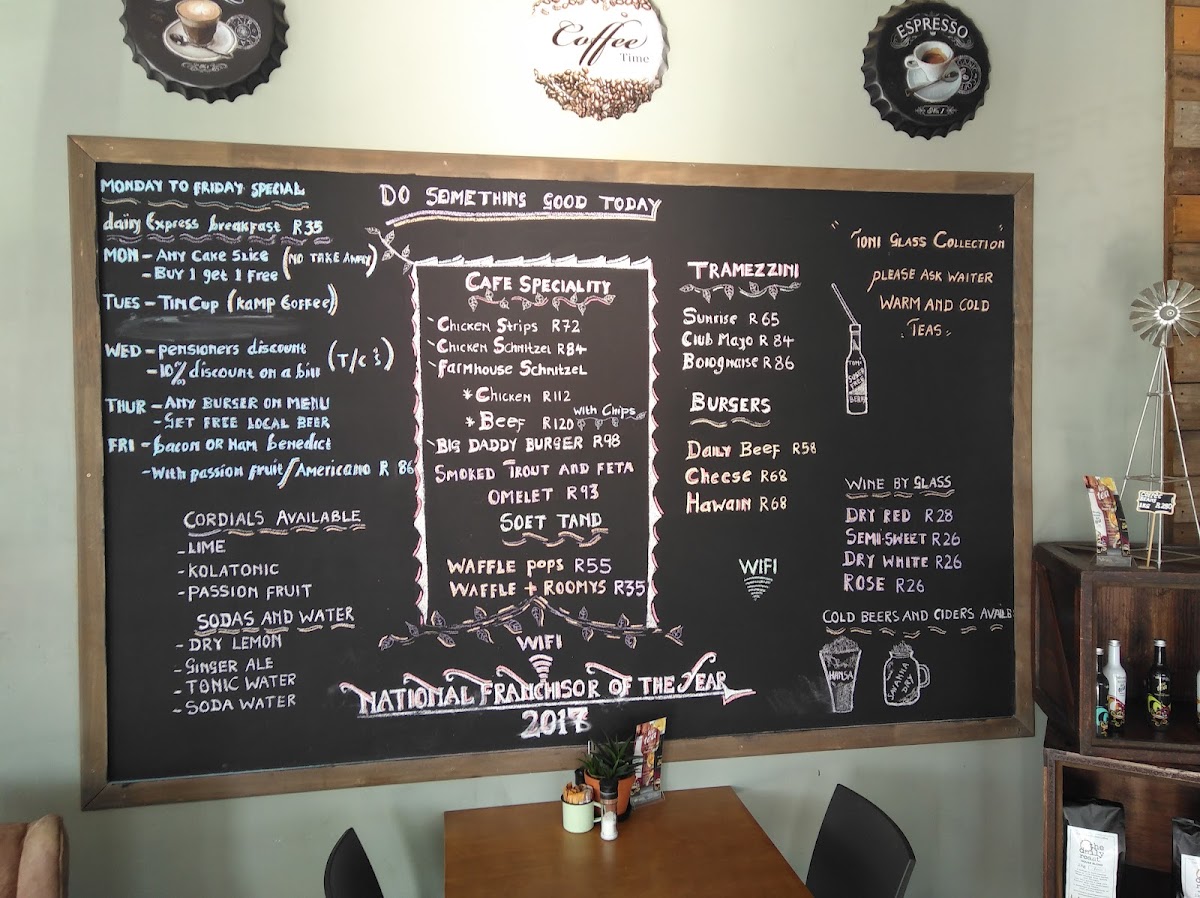 Coffee
Time
ESPRESSO
No. 1
MONDAY TO FRIDAY SPECIAL
daily Express breakfast R35
MON - ANY CAKE SLICE (NO TAKE AWAY)
- BUY 1 get 1 Free
TUES - TIMCUP (KAMP COFFEE)
WED - pensioners discount (T/C'S)
- 10% discount on a bill
THUR - ANY BURGER ON MENU
- GET FREE LOCAL BEER
FRI - bacon OR Ham benedict
- With passion fruit/Americano R 86
CORDIALS AVAILABLE
- LIME
- KOLATONIC
- PASSION FRUIT
SODAS AND WATER
- DRY LEMON
- GINGER ALE
- TONIC WATER
- SODA WATER
DO SOMETHING GOOD TODAY
CAFE SPECIALITY
CHICKEN STRIPS R72
CHICKEN SCHNITZEL R84
FARMHOUSE SCHNITZEL
* CHICKEN R112
* BEEF R120 with Chips
BIG DADDY BURGER R98
SMOKED TROUT AND FETA
OMELET R93
SOET TAND
WAFFLE POPS R55
WAFFLE + ROOMYS R35
WIFI
NATIONAL FRANCHISOR OF THE YEAR
2017
TRAMEZZINI
Sunrise R65
Club Mayo R 84
Bolognaise R86
BURGERS
Daily Beef R58
Cheese R68
Hawain R68
WIFI
"TONI GLASS COLLECTION
PLEASE ASK WAITER
WARM AND COLD
TEAS
WINE BY GLASS
DRY RED R28
SEMI-SWEET R26
DRY WHITE R26
ROSE R26
COLD BEERS AND CIDERS AVAILB
HANSA
SAVANNA
DRY
the
daily
roast